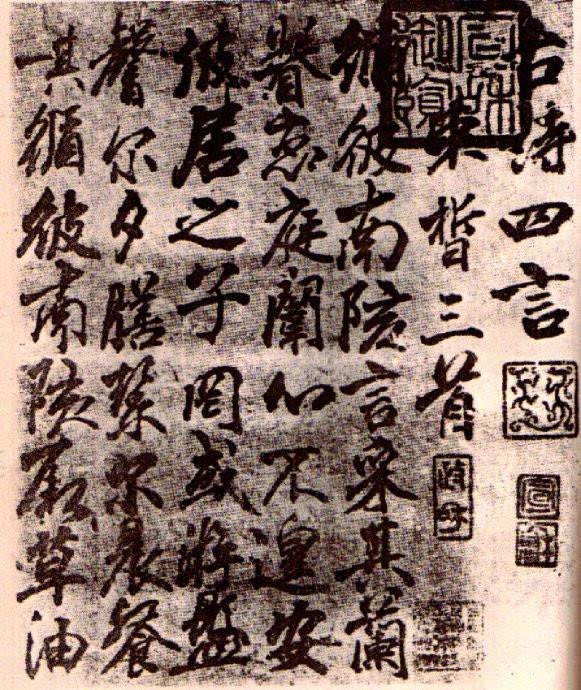 古詩四言
束晳三首
循彼南陔言采其蘭
眷恋庭闈心不遑安
彼居之子罔或游盤
馨尔夕膳絜尔晨餐
其循彼南陔厥草油
政和
宣和